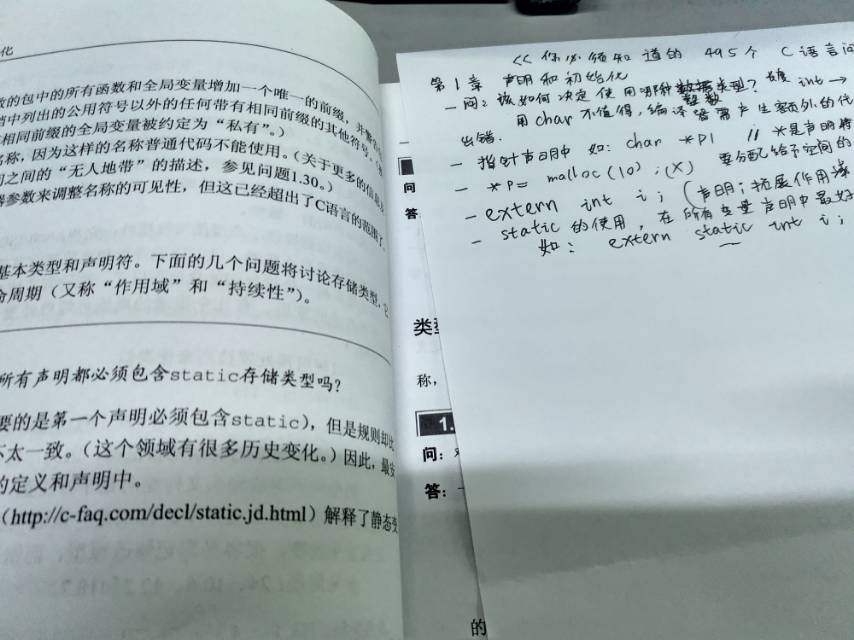 化
数的包中的所有函数和全局变量增加一个唯一的前缀，并警告
当中列出的公用符号以外的任何带有相同前缀的其他符号。
相同前缀的全局变量被约定为“私有”。）
名称，因为这样的名称普通代码不能使用。（关于更多的信息及
间之间的“无人地带”的描述，参见问题1.30。）
器参数来调整名称的可见性，但这已经超出了C语言的范围了
基本类型和声明符。下面的几个问题将讨论存储类型，它
命周期（又称“作用域”和“持续性”）。
所有声明都必须包含static存储类型吗？
要的是第一个声明必须包含static），但是规则却比
不太一致。（这个领域有很多历史变化。）因此，最安
的定义和声明中。
（http://c-faq.com/decl/static.jd.html）解释了静态变
问
答
类型
称，
1.
问：
答：
的
<<你必须知道的 495个 C语言问
第1章 声明和初始化
一问：该如何决定使用哪种整数类型？ int →
用char不值得，编译器需产生额外的代
出错.
- 指针声明中 如：char *p1 // *是声明符
- *p = malloc(10); (X) 要分配给予空间的
- extern int i; (声明；拓展作用域
- static 的使用，在所有变量声明中最好
如：extern static int i;